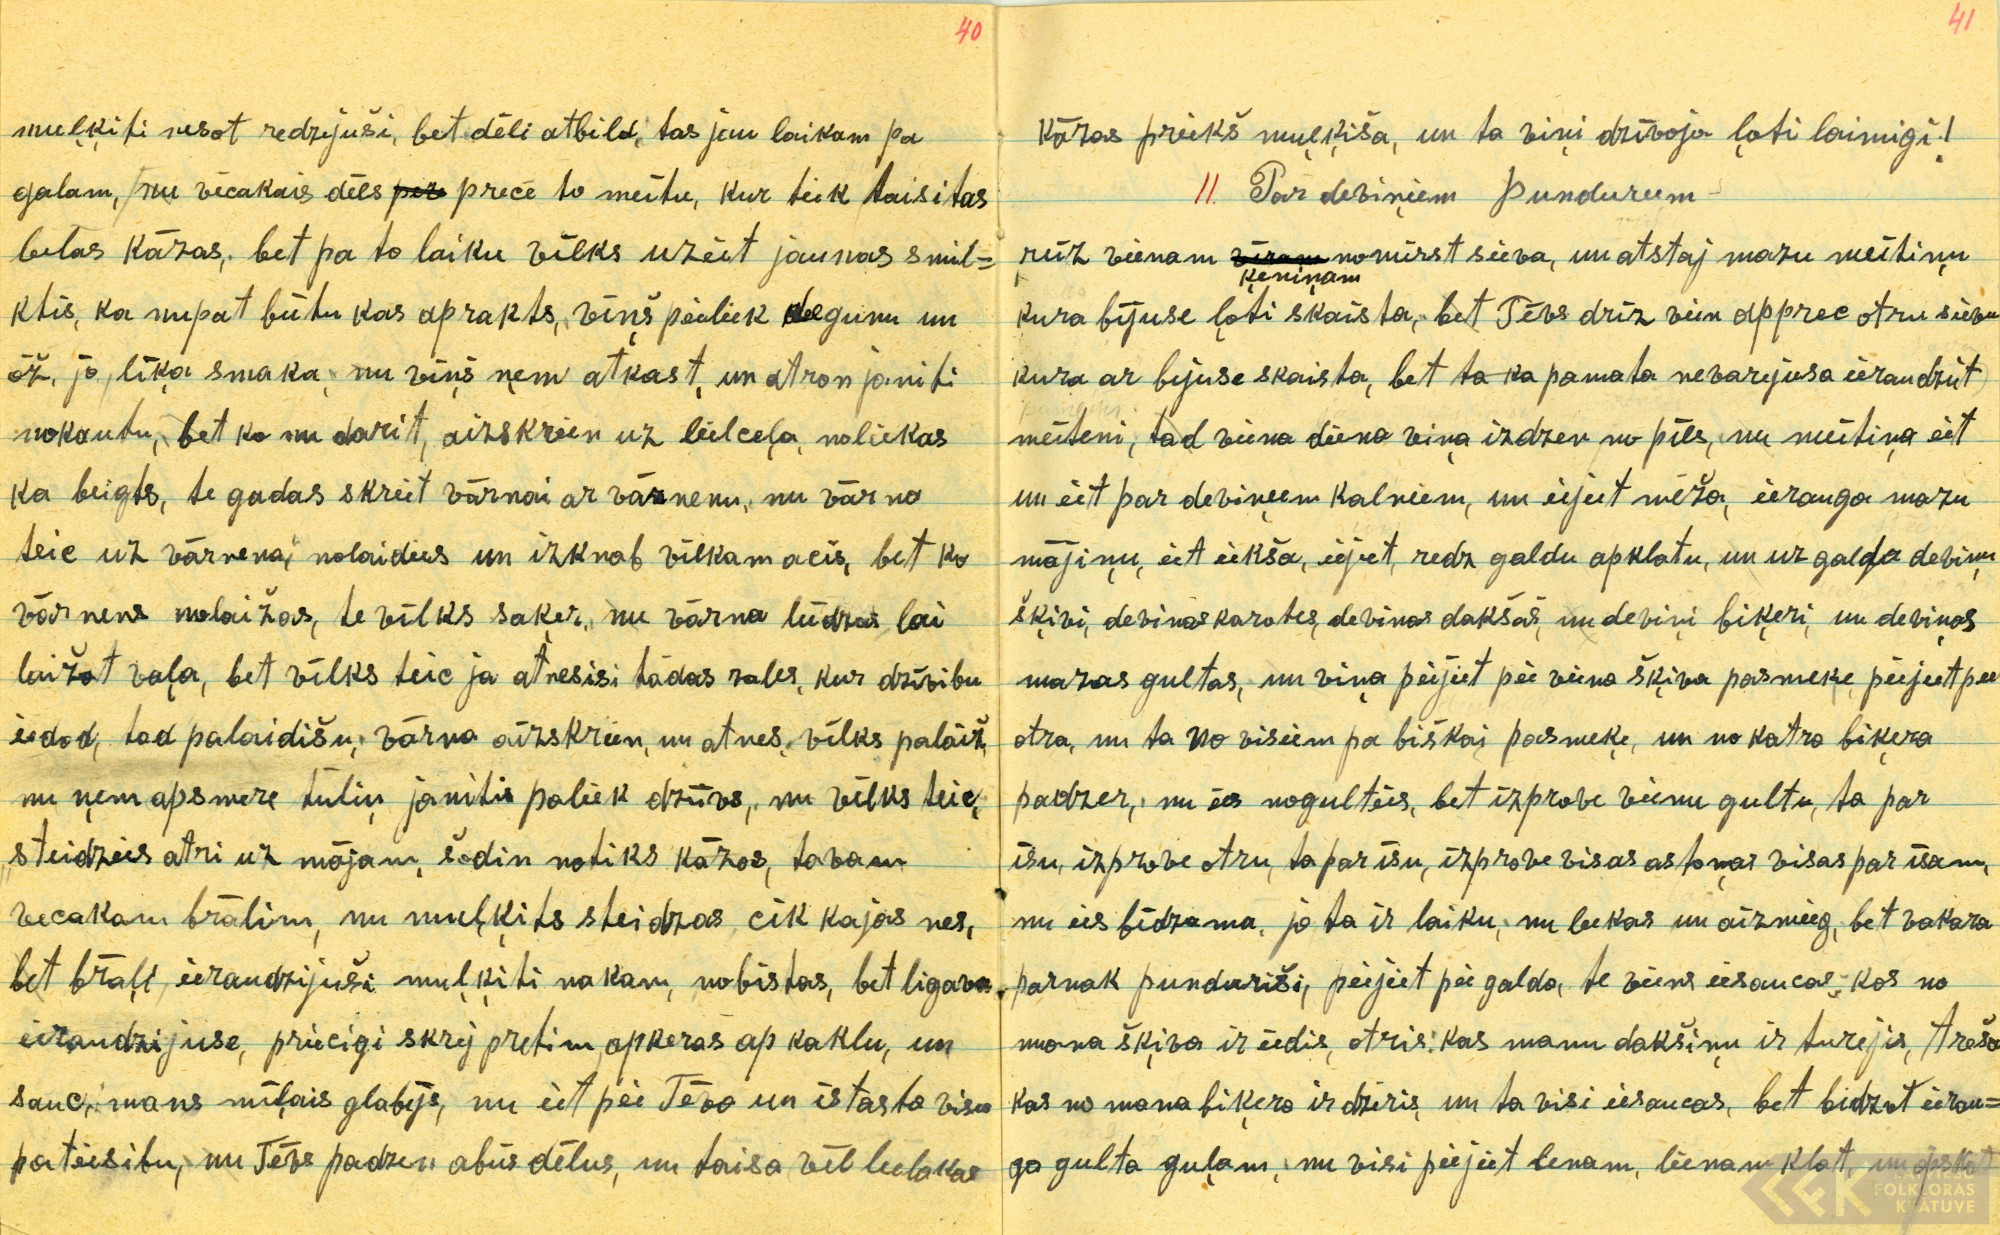 40
muļķiti nesot redzejuši, bet dēli atbild, tas jau laikam pa
galam, nu vēcakais dēls per precē to meitu, kur tiek taisitas
lielas kāzas, bet pa to laiku vilks uziet jaunas smil=
ktis, ka nupat būtu kas aprakts, viņš pieliek degunu un
ož, jo, līķa smaka, nu viņš ņem atkast, un atron janiti
nokautu, bet ko nu darit, aizskrien uz lielceļa, noliekas
ka beigts, te gadas skriet vārnai ar vārnenu, nu vārna
teic uz vārnena, nolaidies un izknab vilkam acis, bet ko
vārnens nolaižas, te vilks saķer, nu vārna lūdzas lai
laižot vaļa, bet vilks teic ja atnesisi tādas zales, kur dzivibu
iedod, tad palaidišu, vārna aizskrien, un atnes, vilks palaiž,
nu ņem apsmere tūliņ janitis paliek dzīvs, nu vilks teic,
„steidzies atri uz mājam, šodin notiks kāzas, tavam
vecakam brālim, nu muļķits steidzas cik kajas nes,
bet brāļi ieraudzijuši muļķiti nakam, nobistas, bet ligava
ieraudzijuse, priecigi skrej pretim apkeras ap kaklu, un
sauc, mans mīļais glabejs, nu iet pie Tēva un istasta visu
pateisibu, nu Tēvs padzen abus dēlus, un taisa vēl lielakas
41
kāzas priekš muļķiša, un ta viņi dzivoja ļoti laimigi!
11. Par deviņiem Punduriem
reiz vienam viram nomirst sieva, un atstaj mazu meitiņu
ķeniņam
kura bijuse ļoti skaista, bet Tēvs driz vien apprec otru sievu
kura ar bijuse skaista, bet ta ka pamata nevarejusa ieraudzit
meiteni, tad viena diena viņa izdzen no pils, nu meitiņa iet
un iet par deviņiem kalniem, un iejiet meža, ierauga mazu
mājiņu, iet iekša, iejiet, redz galdu apklatu, un uz galda deviņu
šķivi, deviņas karotes, deviņas dakšas, un deviņi biķeri, un deviņas
mazas gultas, nu viņa piejiet pie viena šķiva pasmeķe, piejiet pie
otra, nu ta no visiem pa biškai pasmeķe, un no katra biķera
padzer, nu ies nogulties, bet izprove vienu gultu, ta par
isu, izprove otru, ta par isu, izprove visas astoņas visas par isam,
nu ies bidzama, jo ta ir laiku, nu liekas un aizmieg, bet vakara
parnak punduriši, piejiet pie galda, te viens iesaucas, kas no
mana šķiva ir ēdis, otris: kas manu dakšiņu ir turejis, treša
kas no mana biķera ir dzeris, un ta visi iesaucas, bet bidzot ierau=
ga gulta guļam, nu visi piejiet lenam, lienam klat, un apskat
LATVIEŠU
FOLKLORAS
KRĀTUVE